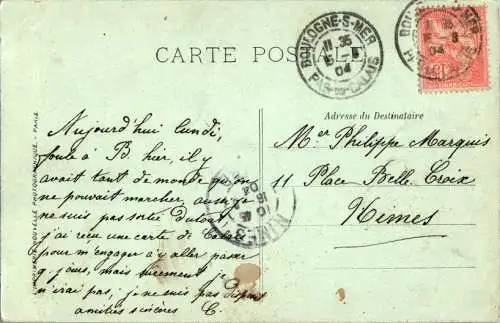 CARTE POSTALE
BOULOGNE-S-MER
11 35
15 - 8
04
PAS-DE-CALAIS
BOULOGNE-S-MER
11 35
8
04
Adresse du Destinataire
Mer Philippe Marquis
11 Place Belle Croix
Nimes
NIMES
04
Aujourd'hui lundi,
foule à B. hier, il y
avait tant de monde qu'on
ne pouvait marcher, aussi je
ne suis pas sortie du tout
j'ai reçu une carte de
pour m'engager à y aller passer
q. jours, mais je
n'irai pas; je ne suis pas
amitiés sincères C.
NOUVELLE PHOTOGRAPHIQUE - PARIS